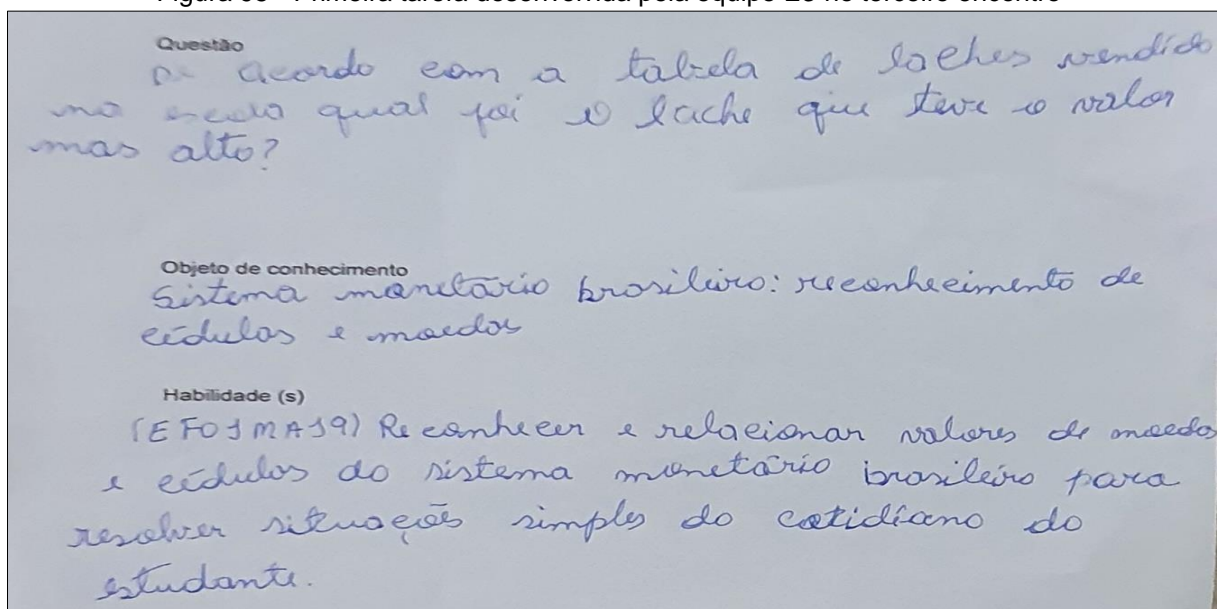 Questão
De acordo com a tabela de laches vendido
na escola qual foi o lache que teve o valor
mas alto?
Objeto de conhecimento
Sistema monetário brasileiro: reconhecimento de
cédulas e moedas
Habilidade (s)
(EF01MA19) Reconhecer e relacionar valores de moedas
e cédulas do sistema monetário brasileiro para
resolver situações simples do cotidiano do
estudante.